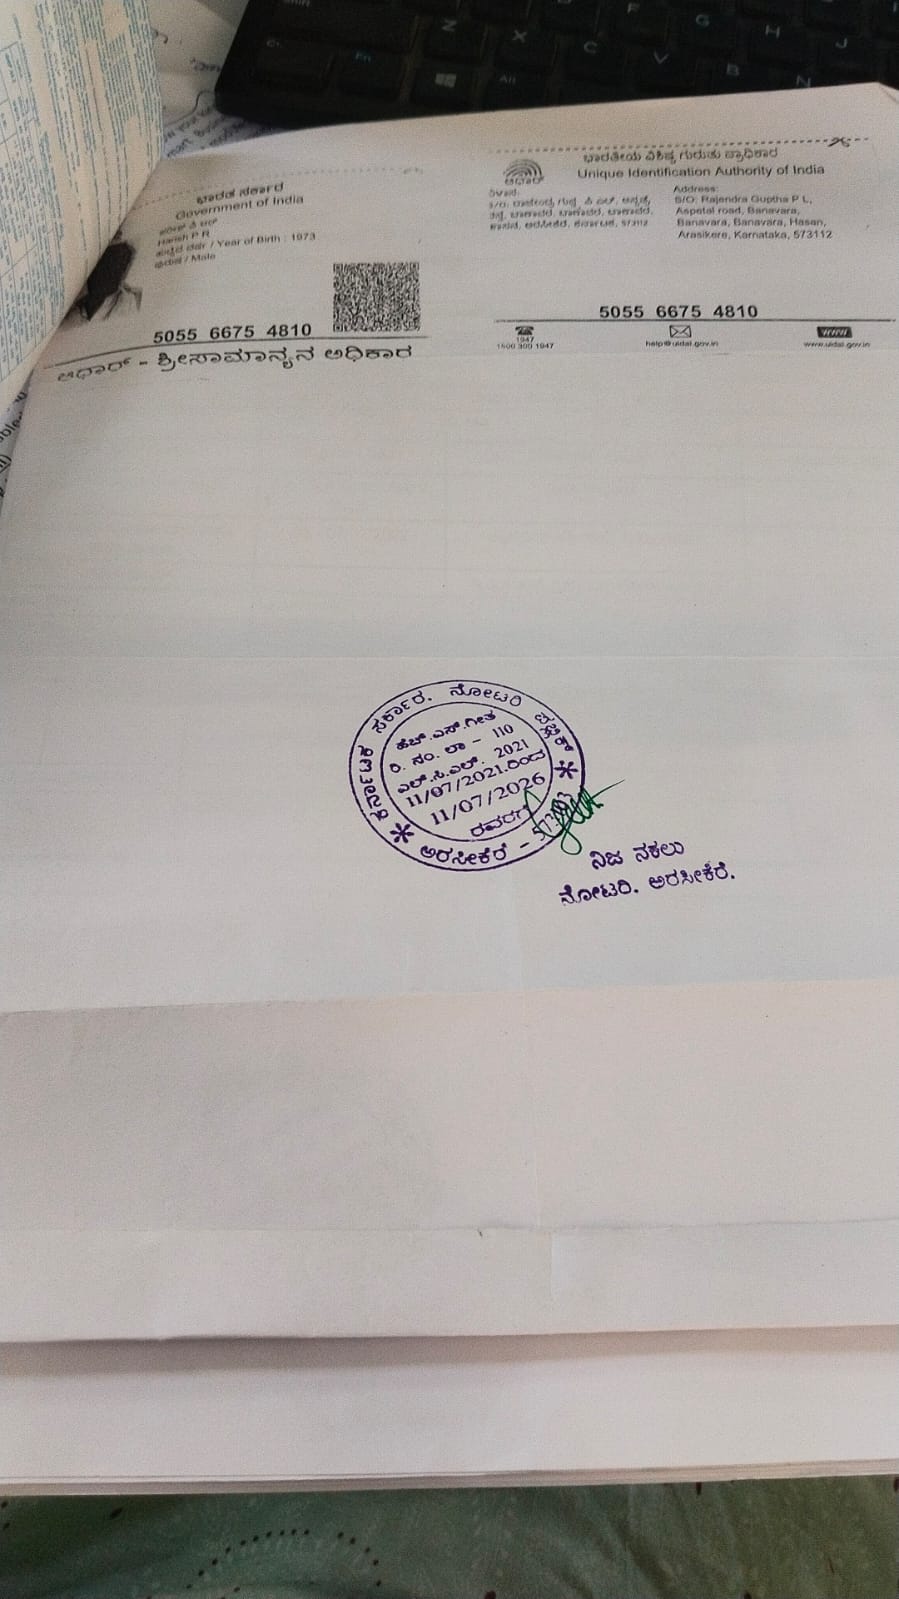 ಭಾರತ ಸರ್ಕಾರ
Government of India
ಹರೀಶ್ ಪಿ ಆರ್
Harish P R
/ Year of Birth : 1973
ಪುರುಷ / Male
5055 6675 4810
ಆಧಾರ್ - ಶ್ರೀಸಾಮಾನ್ಯನ ಅಧಿಕಾರ
ಭಾರತೀಯ ವಿಶಿಷ್ಟ ಗುರುತು ಪ್ರಾಧಿಕಾರ
Unique Identification Authority of India
ಆಧಾರ್
Address:
S/O: Rajendra Guptha P L,
Aspetal road, Banavara,
Banavara, Banavara, Hasan,
Arasikere, Karnataka, 573112
5055 6675 4810
1947
1800 300 1947
help@uidai.gov.in
www
www.uidai.gov.in
ಕರ್ನಾಟಕ ಸರ್ಕಾರ. ನೋಟರಿ ಪಬ್ಲಿಕ್
ಹೆಚ್.ಎಸ್.ಗೀತ
ರಿ. ನಂ. ಲಾ - 110
ಎಲ್.ಸಿ.ಎಲ್. 2021
11/07/2021.ರಿಂದ
11/07/2026
ರವರೆಗೆ
ಅರಸೀಕೆರೆ -
ನಿಜ ನಕಲು
ನೋಟರಿ. ಅರಸೀಕೆರೆ.